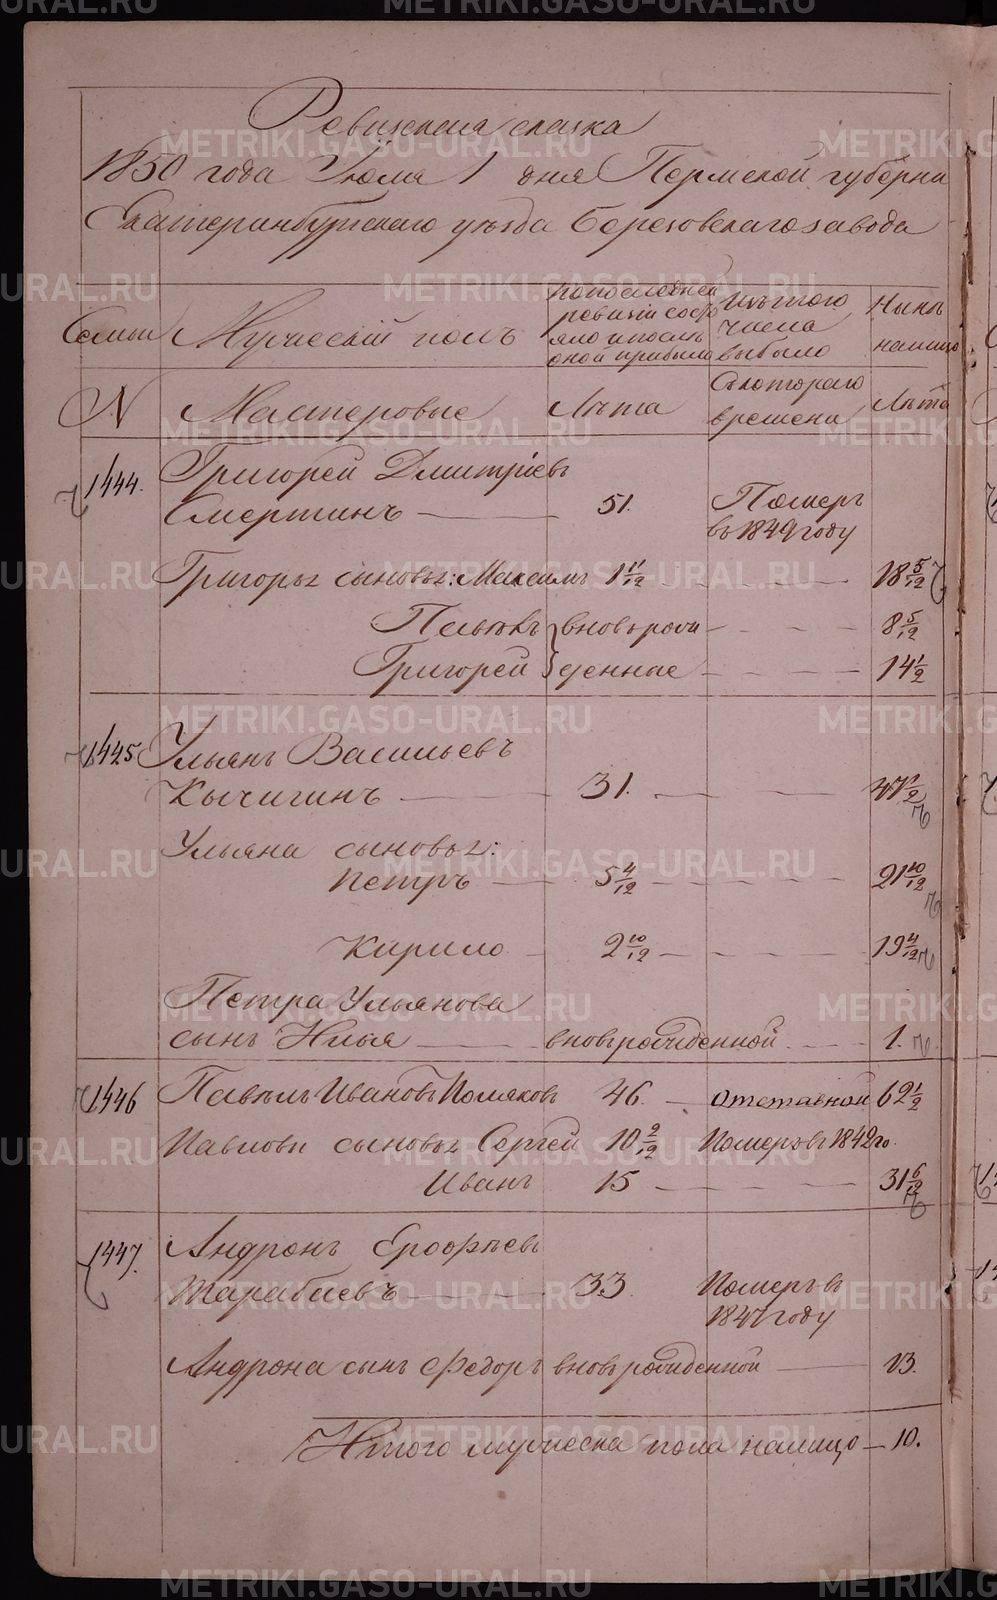 Ревизская сказка
1850 года Июля 1 дня Пермской губерни
Екатеринбургскаго уѣзда Березовскаго завода
Семьи
Мужескій полъ
По последней ревизіи состояло и после оной прибыло
Изъ того числа выбыло
Нынѣ налицо
N
Мастеровые
Лѣта
Съ котораго времени
Лѣта
1444. Григорей Дмитріевъ
Смертинъ 51. Померъ
въ 1849 году
Григорья сыновья: Максимъ 1 11/12 18 5/12
Павелъ вновь рож 8 5/12
Григорей денные 14 1/2
1445 Ульянъ Васильевъ
Кычигинъ 31. 47 1/2
Ульяна сыновья:
Петръ 5 4/12 21 10/12
Кирило 2 10/12 19 4/12
Петра Ульянова
сынъ Илья вновь рожденной 1.
1446 Павелъ Ивановъ Поляковъ 46 отставной 62 1/2
Павловы сыновья Сергей 10 2/12 Померъ въ 1842 го
Иванъ 15 31 6/12
1447. Андронъ Ерофѣевъ
Тарабаевъ 33. Померъ в
1847 году
Андрона сынъ Федоръ вновь рожденной 13.
Итого мужеска пола налицо 10.
METRIKI.GASO-URAL.RU